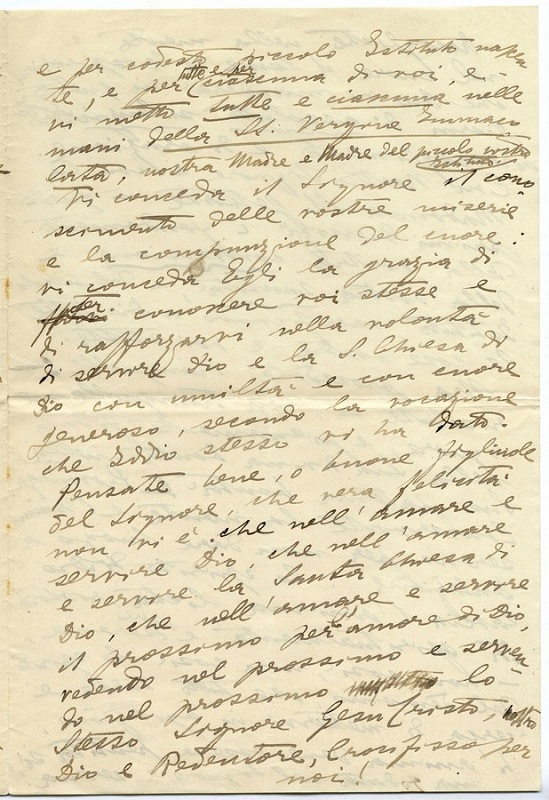 e per codesto piccolo Istituto nascen
te, e per tutte e per ciascuna di voi, e
vi metto tutte e ciascuna nelle
mani della SS. Vergine Immaco
lata, nostra Madre e Madre del piccolo vostro Istituto
Vi conceda il Signore il cono
scimento delle vostre miserie
e la compunzione del cuore:
vi conceda Egli la grazia di
per conoscere voi stesse e
di rafforzarvi nella volontà
di servire Dio e la S. Chiesa di
Dio con umiltà e con cuore
generoso, secondo la vocazione
che Iddio stesso vi ha dato.
Pensate bene, o buone figliuole
del Signore, che vera felicità
non vi è che nell'amare e
servire Dio, che nell'amare
e servire la Santa Chiesa di
Dio, che nell'amare e servire
il prossimo per amore di Dio,
vedendo nel prossimo e serven-
do nel prossimo lo
Stesso Signore Gesù Cristo, nostro
Dio e Redentore, Crocifisso per
noi!